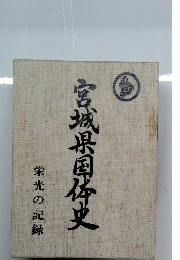 宮城県国体史
栄光の記録